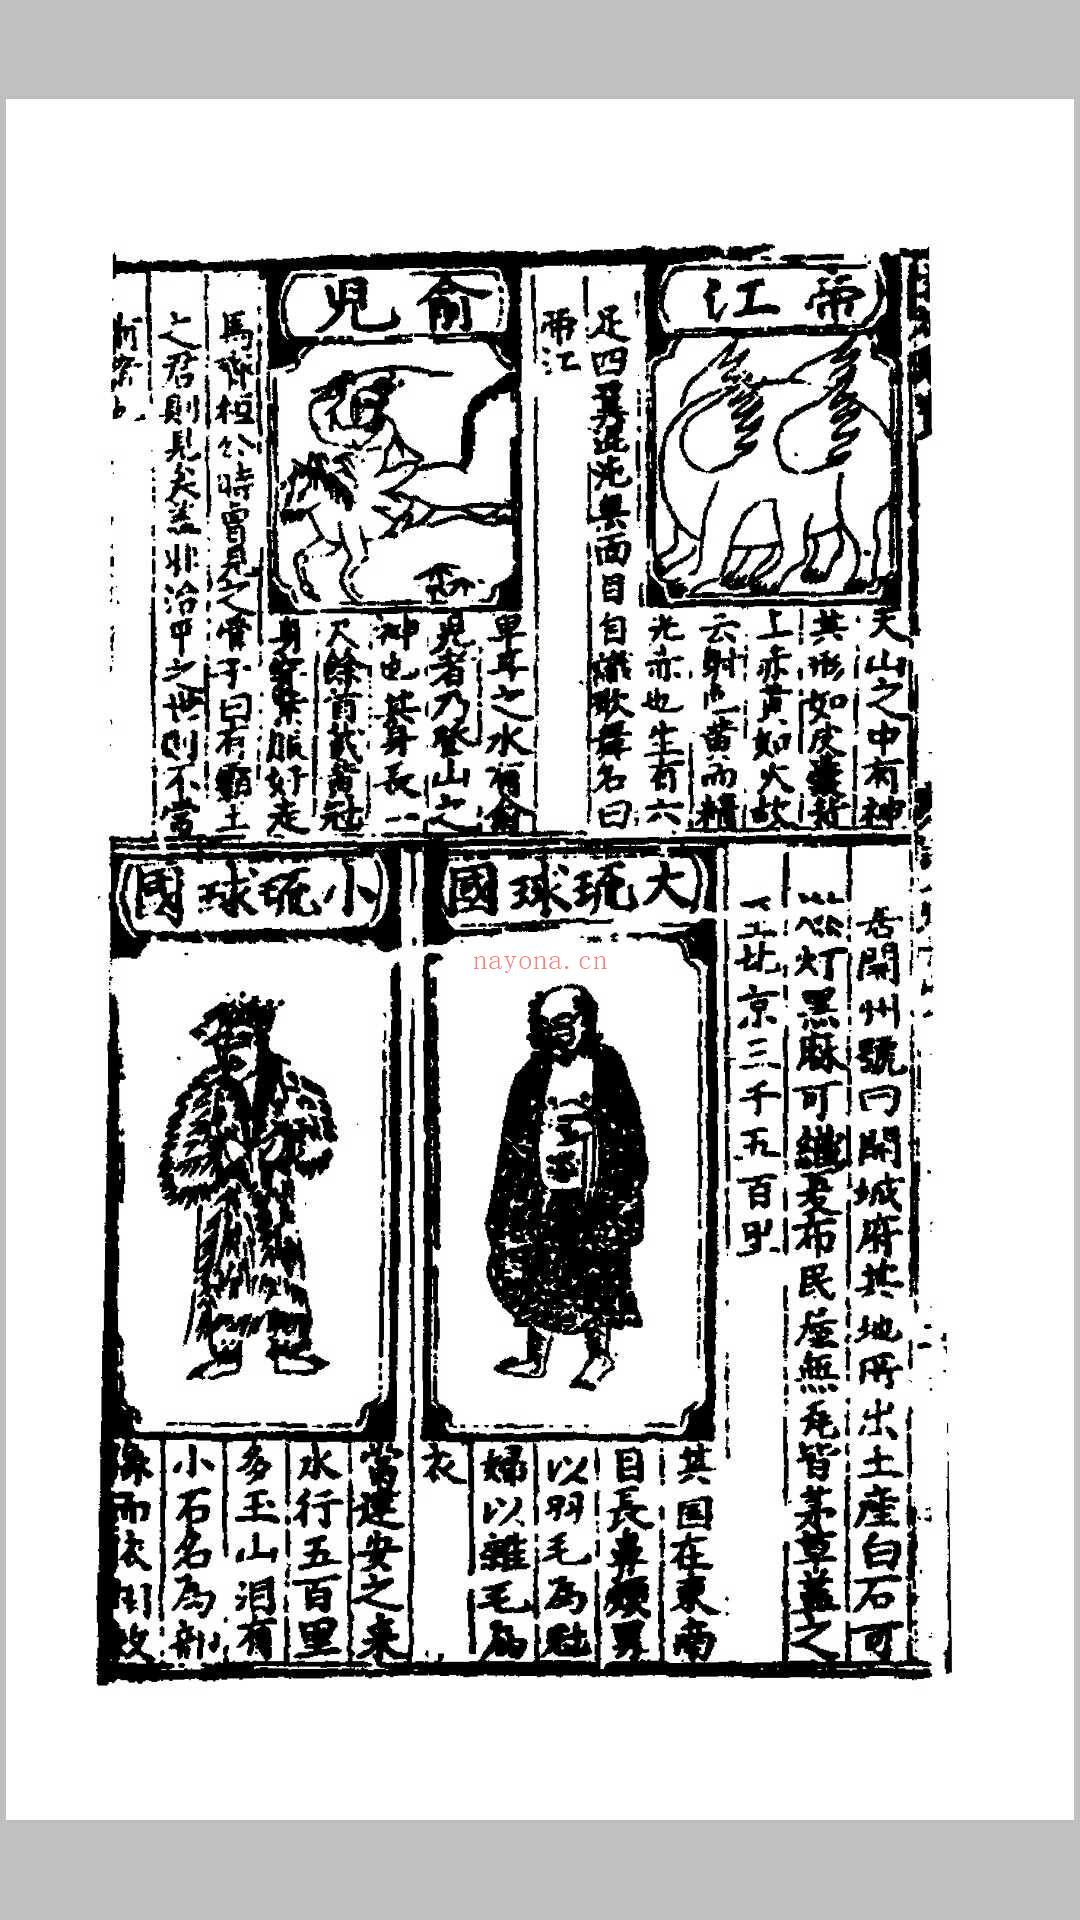 帝江
天山之中有神
其形如皮囊背
上赤黄如火故
云射一黄而精
光赤也生有六
足四翼混沌無面目自識歌舞名曰
帝江
俞兒
卑耳之水有俞
兒者乃登山之
神也其身長一
尺餘首戴黄冠
身穿朱服好走
馬齊桓公時曾見之管子曰有霸王
之君則見矣盖非治平之世則不當
居開州號曰開城府其地所出土産白石可
以燃灯黑麻可織夏布民屋無瓦皆茅草蓋之
至北京三千五百里
大琉球國
其国在東南
目長鼻類男
以羽毛為冠
婦以雜毛為
衣
小琉球國
當建安之東
水行五百里
多玉山洞有
小石名為
而
nayona.cn